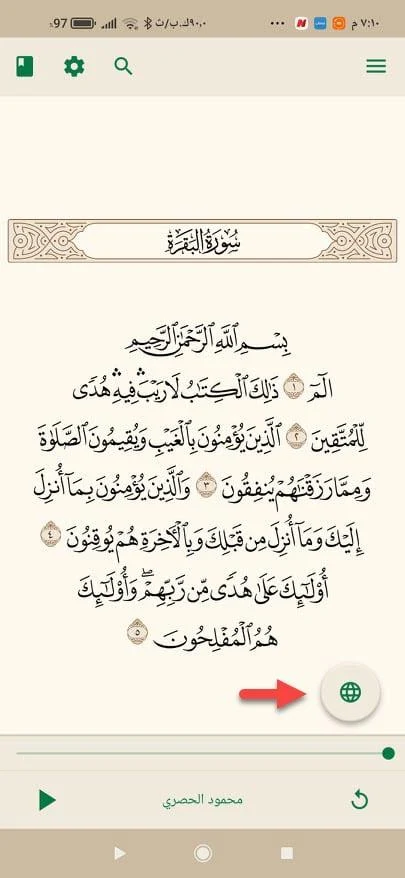 ٧:١٠ م ••• ٩٠,٠ك.ب/ث 97
سُورَةُ البَقَرَةِ
بِسْمِ ٱللَّهِ ٱلرَّحْمَٰنِ ٱلرَّحِيمِ
الٓمٓ ١ ذَٰلِكَ ٱلْكِتَٰبُ لَا رَيْبَ ۛ فِيهِ ۛ هُدًى
لِّلْمُتَّقِينَ ٢ ٱلَّذِينَ يُؤْمِنُونَ بِٱلْغَيْبِ وَيُقِيمُونَ ٱلصَّلَوٰةَ
وَمِمَّا رَزَقْنَٰهُمْ يُنفِقُونَ ٣ وَٱلَّذِينَ يُؤْمِنُونَ بِمَآ أُنزِلَ
إِلَيْكَ وَمَآ أُنزِلَ مِن قَبْلِكَ وَبِٱلْءَاخِرَةِ هُمْ يُوقِنُونَ ٤
أُو۟لَٰٓئِكَ عَلَىٰ هُدًى مِّن رَّبِّهِمْ ۖ وَأُو۟لَٰٓئِكَ
هُمُ ٱلْمُفْلِحُونَ ٥
محمود الحصري